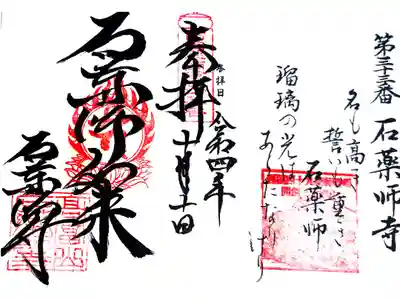 第三十三番 石薬師寺
名も高き
誓いも重き
石薬師
瑠璃の光は
あらたなりけり
奉拝
参拝日
令和四年
十月十日
石薬師如来
石薬師寺